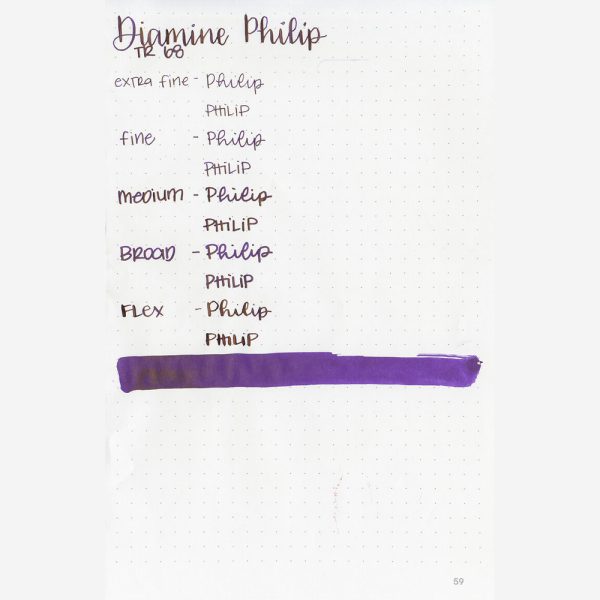 Diamine Philip
TR 68
extra fine - Philip
PHILIP
fine - Philip
PHILIP
MEDIUM - Philip
PHILIP
BROAD - Philip
PHILIP
FLEX - Philip
PHILIP
59